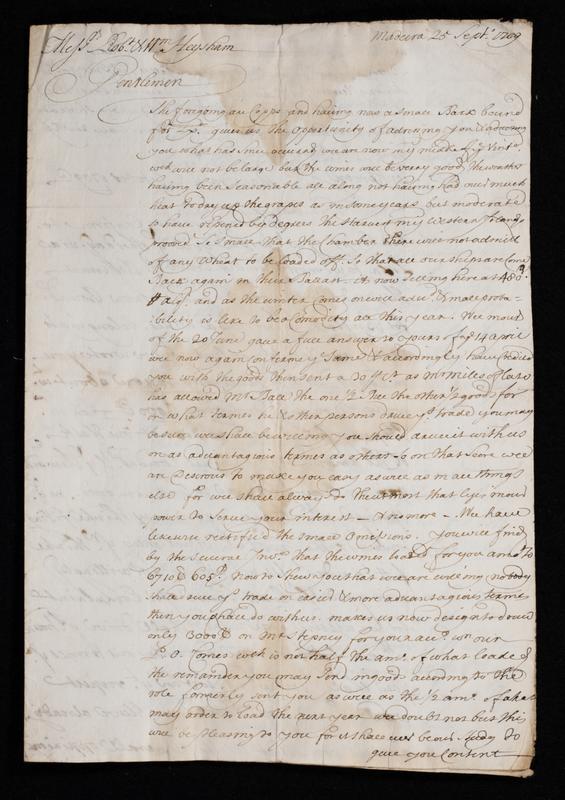 Mess.rs Rob.t & W.m Heysham
Madeira 25 Sept.r 1709
Gentlemen
The foregoing are Copys and having now a Small Bark bound
for gives us the opportunity of advising you & advising
you what has since occurred we are now in middle of Vint.
wch will not be large but the wines will be very good the weather
having been seasonable all along not having had over much
heat to dry up the grapes as in some years but moderate
so have ripened by degrees the Harvest in Western Islands
proved So Small that the Chamber there will not admitt
of any Wheat to be loaded off. So that all our ships are Come
Back again in their Ballast. It now selling here at 480 rs
and as the winter comes on will adv.e & in all proba=
bility is like to be a Comodity all this year. Wee must
of the 20 June gave a full answer to yours of ye 14 april
wee now again Confirme ye Same & accordingly have credited
you with the goods then sent a 30 as Mr Miles of late
has allowed Mr the one 1/2 & the other 1/2 goods for
on what termes he & other persons drive ye trade you may
be sure wee shall be willing you should drive it with us
on as advantagious termes as others & on that Score wee
are Desirous to make you easy as well as in all things
else for wee shall always do the utmost that lyes in our
power to Serve your interest — & no more — We have
likewise rectified the small Omissions. You will find
by the Severall Inv.s that the wines loaded for you amo. to
6710$ 605 Now to Shew you that wee are willing nobody
shall drive ye trade on easier & more advantagious terms
then you shall do with us. makes us now design to draw
only 3000$ on Mr Stepney for your acc.t wn our
Comes wch is not half the am.o of what loade &
the remainder you may Send in goods according to the
note formerly sent you as well as the 1/2 am.o of what
may order to load the next year wee doubt not but this
will be pleasing to you for it shall ever be our Study to
give you Content